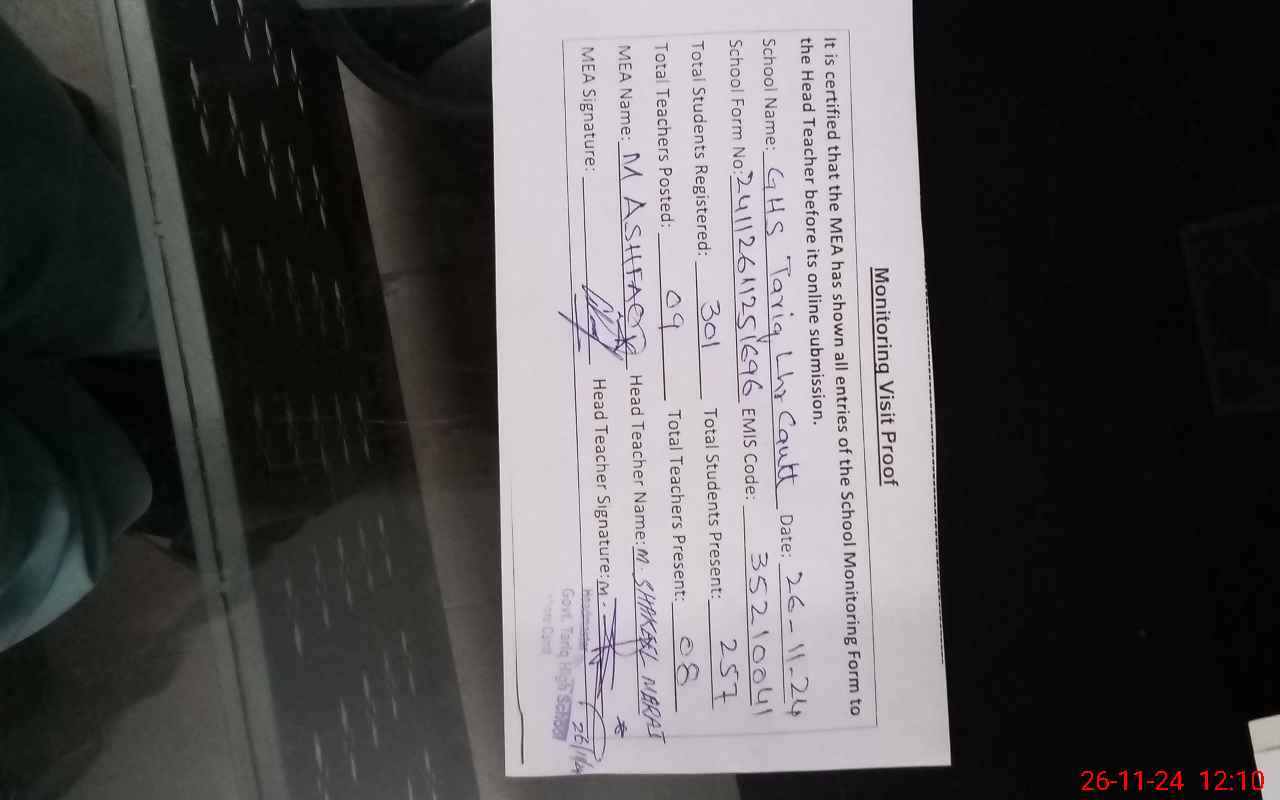 Monitoring Visit Proof
It is certified that the MEA has shown all entries of the School Monitoring Form to
the Head Teacher before its online submission.
School Name: GHS Tariq Lhr Cantt Date: 26-11-24
School Form No: 2411261251696 EMIS Code: 35210041
Total Students Registered: 301 Total Students Present: 257
Total Teachers Posted: 09 Total Teachers Present: 08
MEA Name: M ASHFAQ Head Teacher Name: M. SHAKEEL
MEA Signature: Head Teacher Signature: M.
Headmaster
Govt. Tariq High School
Cantt
26-11-24 12:10